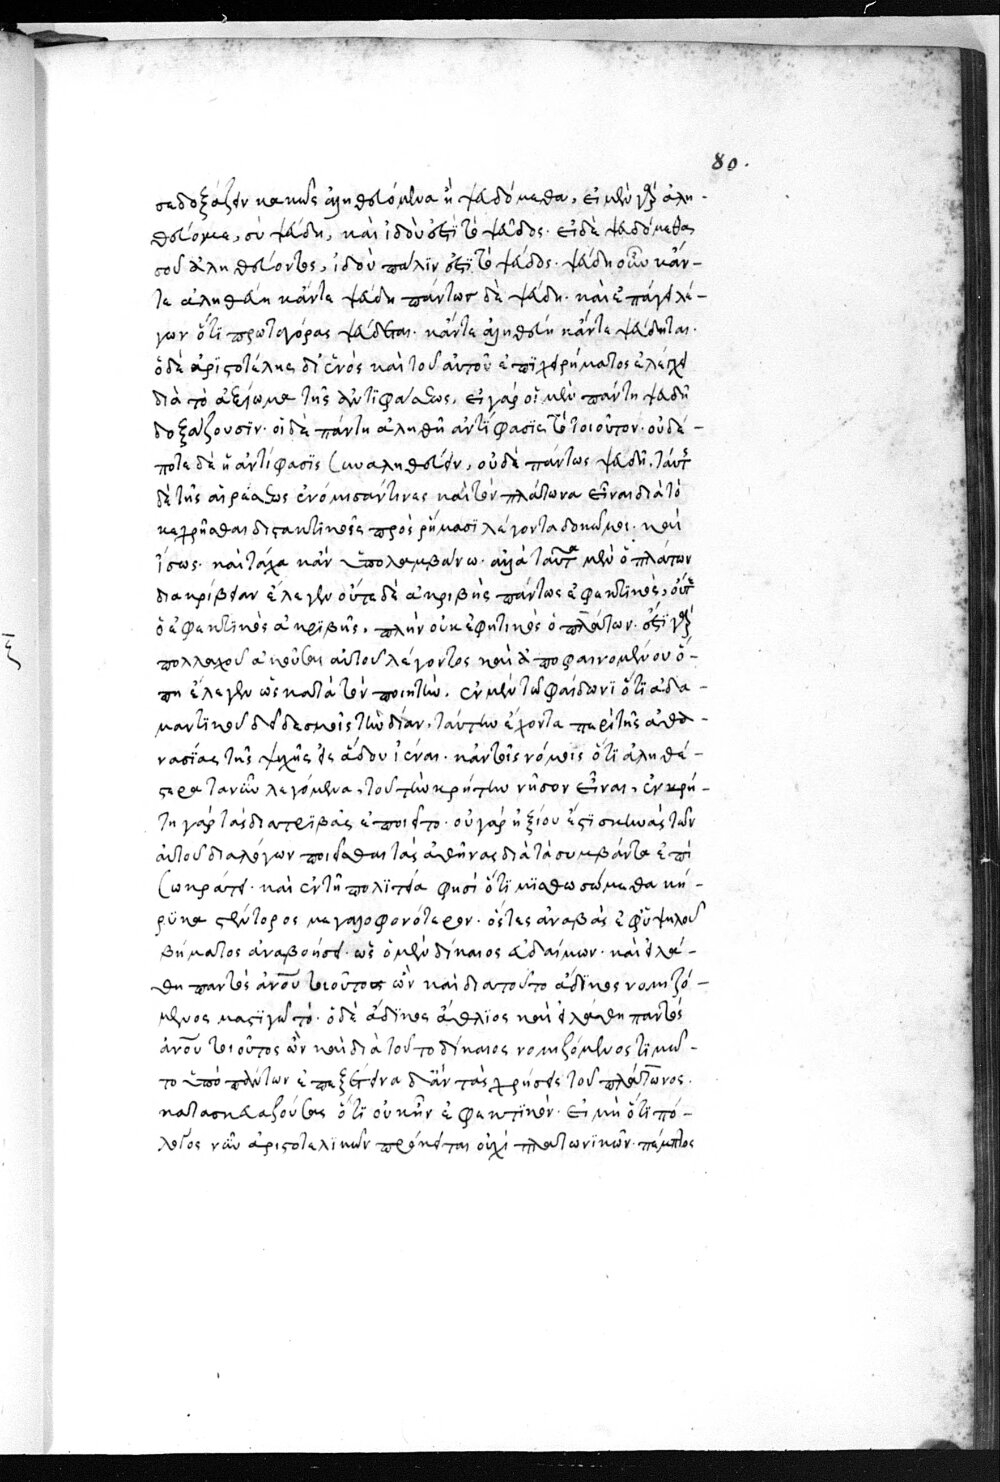 80.
σε δοξάζειν κακῶς ἀληθεύομεν ἢ ψευδόμεθα, εἰ μὲν γὰρ ἀλη-
θεύομεν, σὺ ψεύδῃ, καὶ ἰδοὺ ἐστὶ τὸ ψεῦδος· εἰ δὲ ψευδόμεθα
σοῦ ἀληθεύοντος, ἰδοὺ πάλιν ἐστὶ τὸ ψεῦδος· ψεύδῃ οὖν κἄν-
τε ἀληθεύῃ κἄντε ψεύδῃ πάντως δὲ ψεύδῃ· καὶ ἐπάγει λέ-
γων ὅτι πρωταγόρας ψεύδεται· κἄντε ἀληθεύῃ κἄντε ψεύδηται·
ὁ δὲ ἀριστοτέλης δι' ἑνὸς καὶ τοῦ αὐτοῦ ἐπιχειρήματος ἐλέγχει
διὰ τὸ ἀξίωμα τῆς ἀντιφάσεως, εἰ γὰρ οἱ μὲν πάντη ψευδῆ
δοξάζουσιν· οἱ δὲ πάντη ἀληθῆ ἀντίφασις τὸ τοιοῦτον· οὐδέ-
ποτε δὲ ἡ ἀντίφασις συναληθεύει, οὐδὲ πάντως ψευδῆ, ταύτης
δὲ τῆς αἱρέσεως ἐνόμισάν τινες καὶ τὸν πλάτωνα εἶναι διὰ τὸ
κεχρῆσθαι διστακτικοῖς προσρήμασι λέγοντα δοκῶ μοι· καὶ
ἴσως· καὶ τάχα κἂν ὑπολαμβάνω· ἀλλὰ ταῦτα μὲν ὁ πλάτων
διακρίβειαν ἔλεγεν οὔτε δὲ ἀκριβὴς πάντως ἐφεκτικὸς, οὔτε
ὁ ἐφεκτικὸς ἀκριβὴς, πλὴν οὐκ ἐφεκτικὸς ὁ πλάτων· ἔστι γὰρ
πολλαχοῦ ἀκοῦσαι αὐτοῦ λέγοντος καὶ ἀποφαινομένου ὅ-
πη ἔλεγεν ὡς κατὰ τὸν ποιητὴν, ἐν μὲν τῷ φαίδωνι ὅτι ἀδα-
μαντίνοις δὲ δεσμοῖς τὴν δίαν, ταύτην ἔχοντα περὶ τῆς ἀθα-
νασίας τῆς ψυχῆς εἰς ἅδου ἰέναι· κἀν τοῖς νόμοις ὅτι ἀληθέ-
στερα τὰ νῦν λεγόμενα, τοῦ τὴν κρήτην νῆσον εἶναι, ἐν κρή-
τῃ γὰρ τὰς διατριβὰς ἐποιεῖτο· οὐ γὰρ ἠξίου ἔτι σκηνὰς τῶν
αὐτοῦ διαλόγων ποιεῖσθαι τὰς ἀθήνας διὰ τὰ συμβάντα ἐπὶ
σωκράτει· καὶ ἐν τῇ πολιτεία φησὶ ὅτι μισθωσώμεθα κή-
ρυκα στέντορος μεγαλοφωνότερον· ὅστις ἀναβὰς ἐφ' ὑψηλοῦ
βήματος ἀναβοήσει· ὡς ὁ μὲν δίκαιος εὐδαίμων· καὶ εἰ λά-
θῃ πάντας ἀνους τοιοῦτος ὢν καὶ διὰ τοῦτο ἄδικος νομιζό-
μενος μαστιγῶτο· ὁ δὲ ἄδικος ἄθλιος καὶ εἰ λάθῃ πάντας
ἀνους τοιοῦτος ὢν καὶ διὰ τοῦτο δίκαιος νομιζόμενος τιμῷ-
το ὑπὸ πάντων ἐπεξετείνα δ' ἂν τὰς χρήσεις τοῦ πλάτωνος
κατασκευαζούσας ὅτι οὐκ ἦν ἐφεκτικὸν· εἰ μὴ ὅτι πό-
λεμος νῦν ἀριστοτελικῶν πρόκειται οὐχὶ πλατωνικῶν· πέμπτος